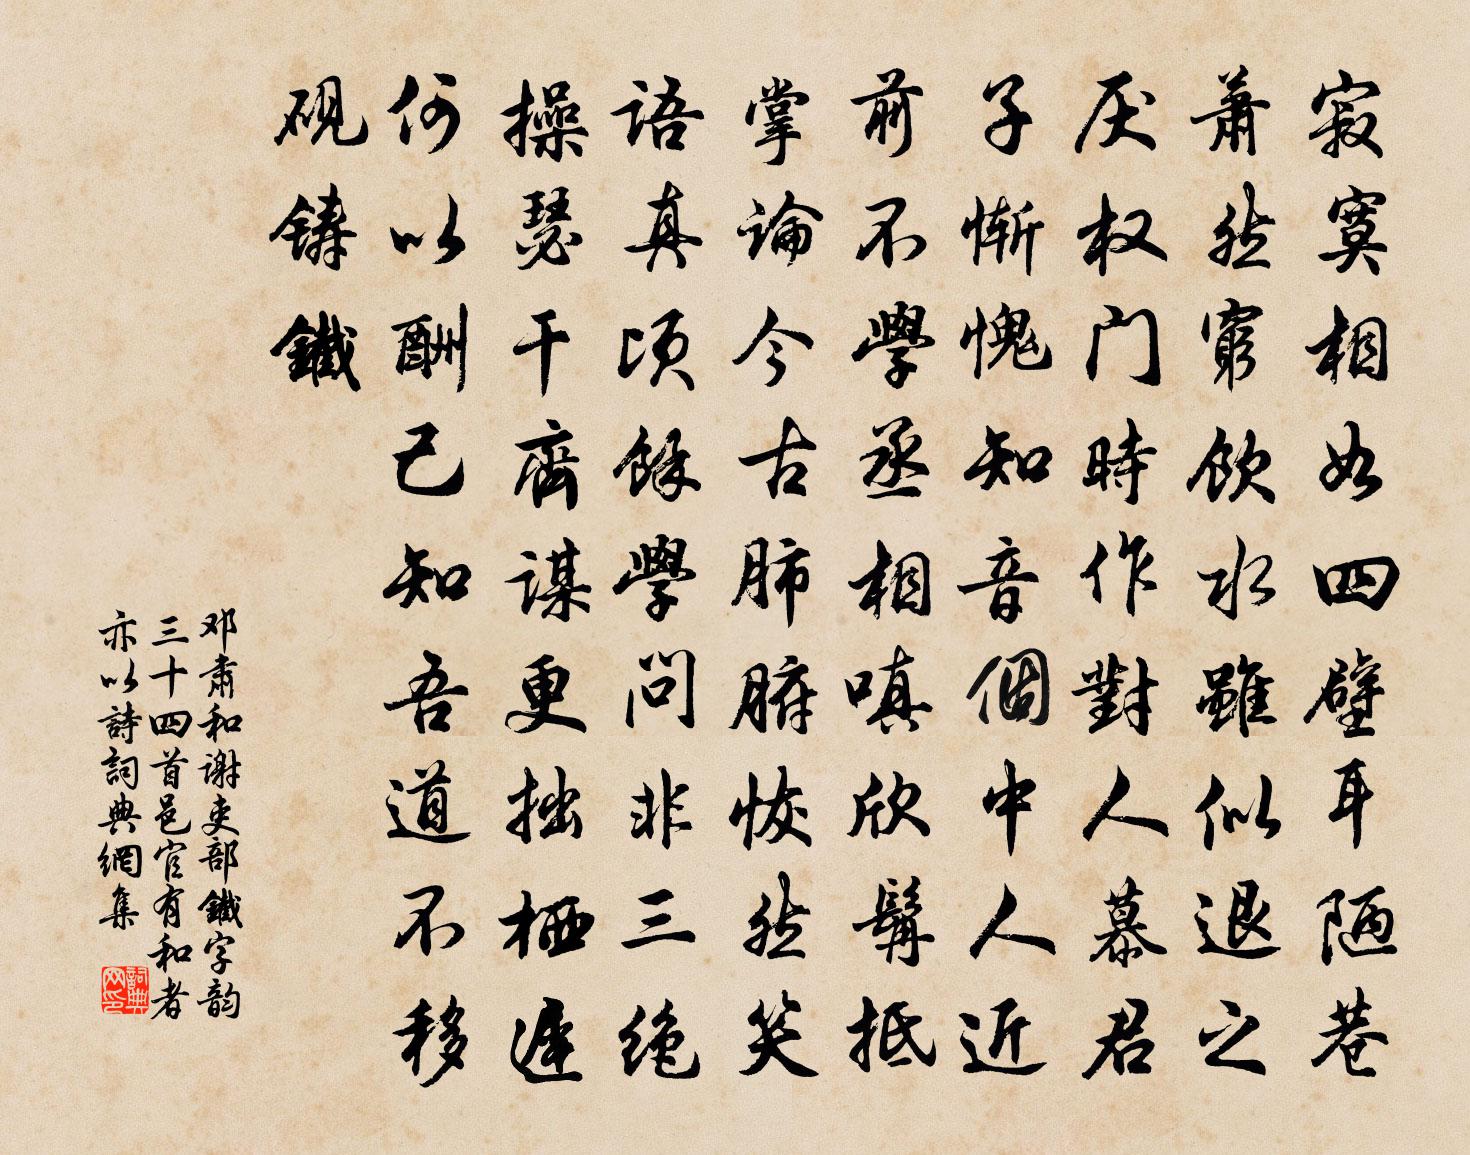 寂寞相如四壁耳陋巷
萧然窮飲水雖似退之
厌权门時作對人慕君
子惭愧知音個中人近
前不學丞相嗔欣髯抵
掌論今古肺腑恢然笑
語真頃餘學問非三绝
操瑟干齊谋更拙栖遲
何以酬己知吾道不移
砚鑄鐵
邓肃和谢吏部鐵字韵
三十四首邑官有和者
亦以詩詞典網集
詞典网印